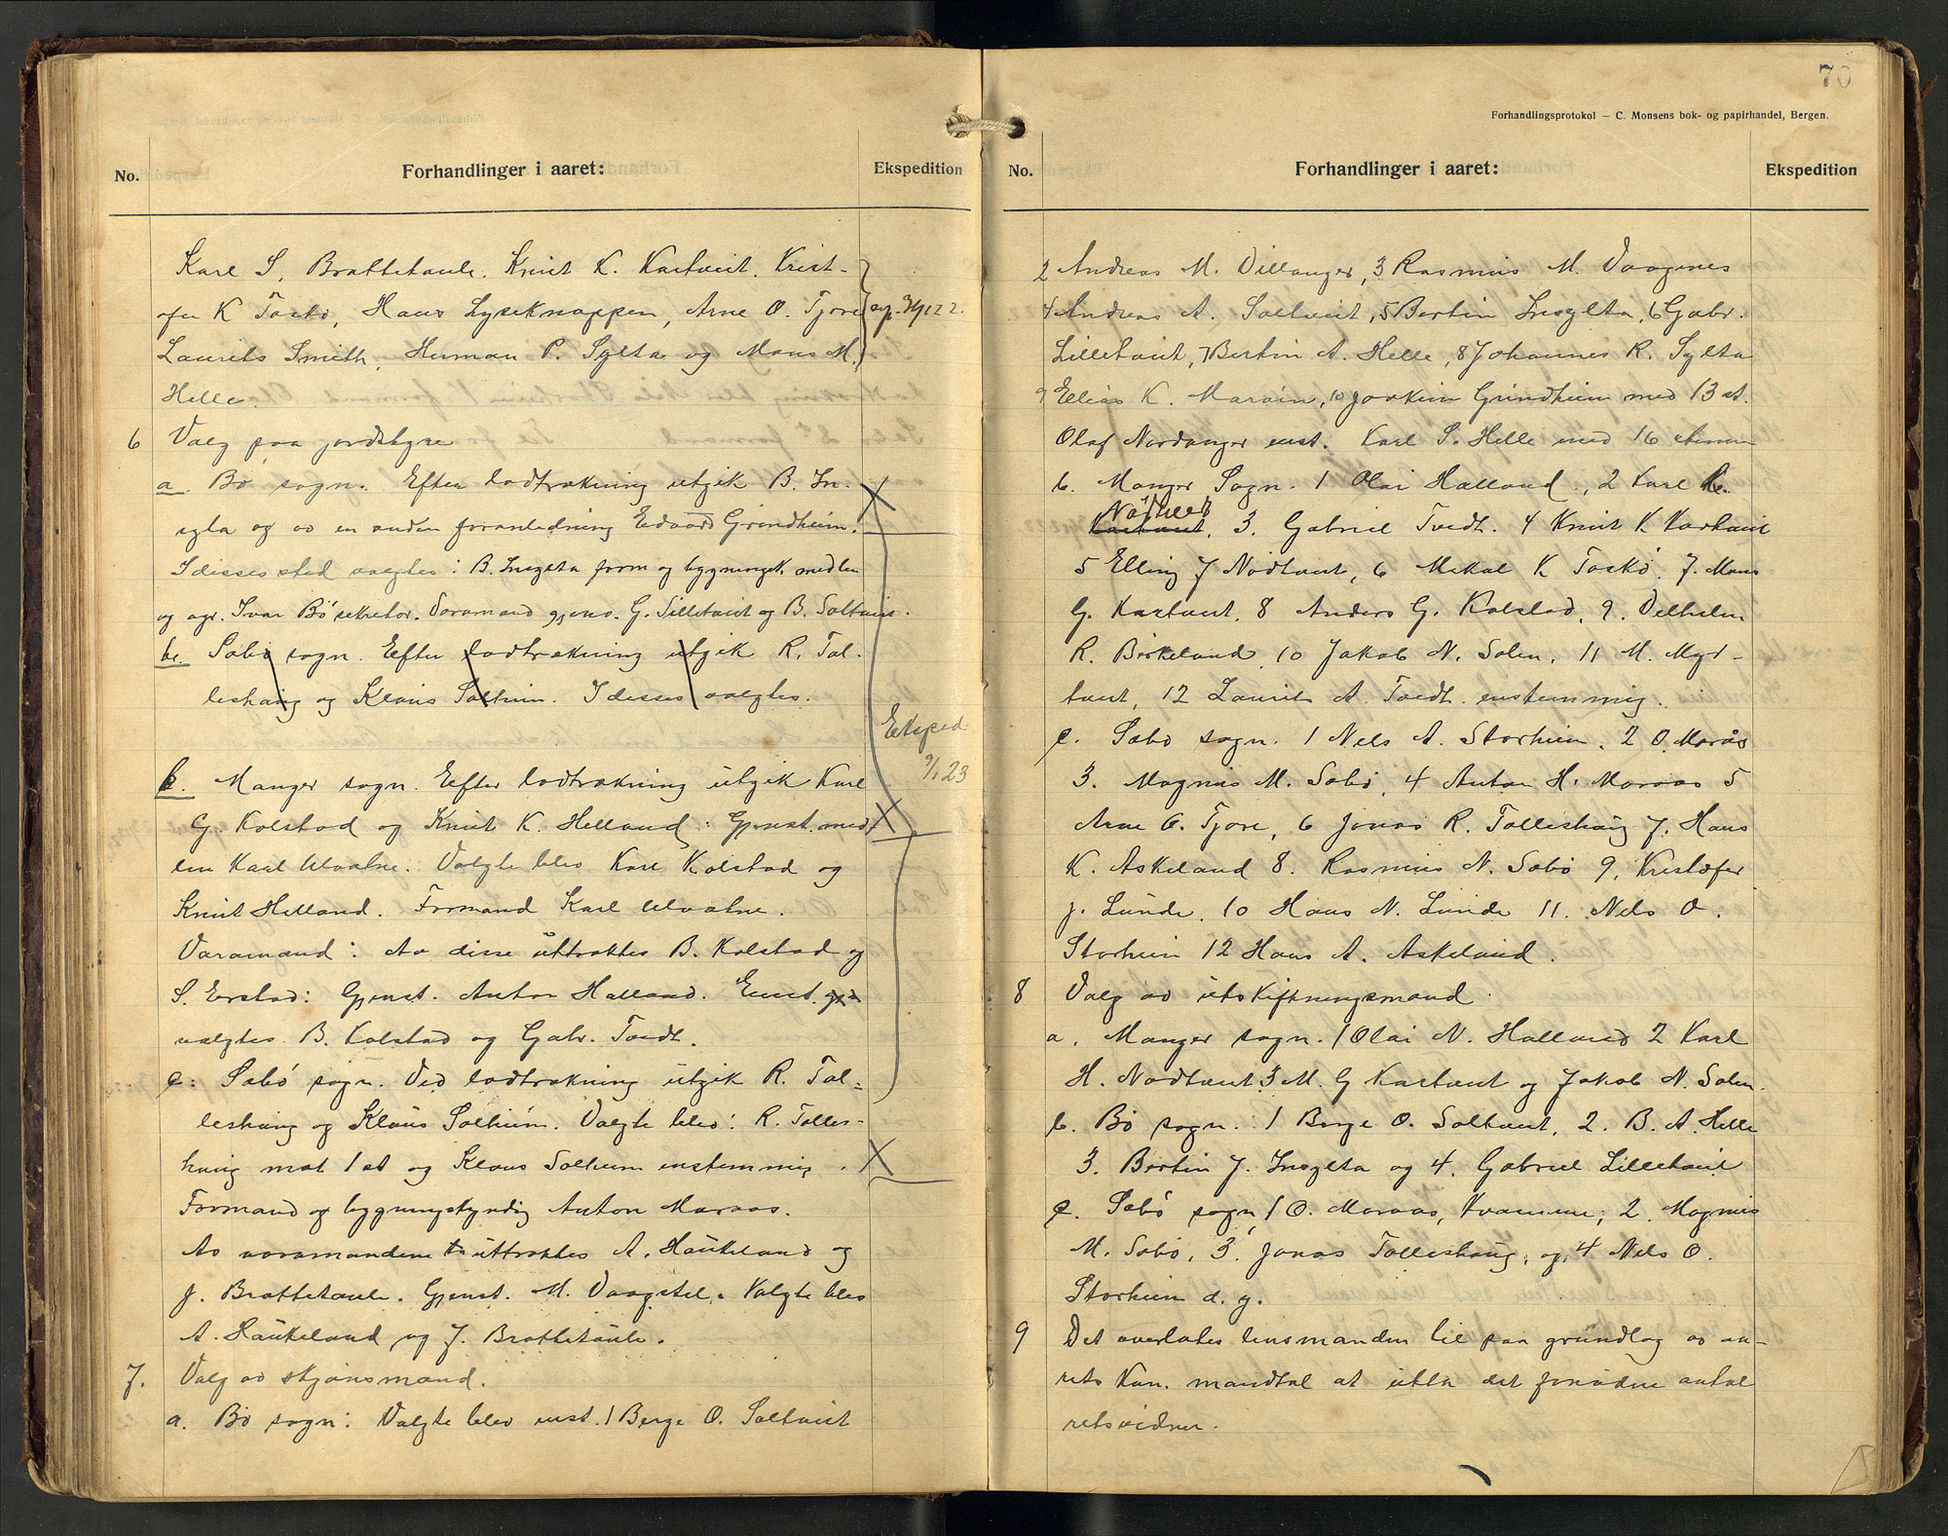 No. Forhandlinger i aaret: Ekspedition
Karl S. Brattetaule. Knut K. Kartveit. Krist-
ofer K Toskø, Hans Lyseknappen, Arne O. Tjore
Laurits Smith, Herman P. Sylta og Mons M.
Helle.
6 Valg paa jordstyre
a. Bø sogn. Efter lodtrækning utgik B. In-
sylta og av en anden foranledning Edvard Grindheim.
I disses sted valgtes: B. Insylta form og bygningsk. medlem
og agr. Ivar Bø sekretær. Varamænd gjenv. G. Lilletveit og B. Soltveit.
b. Sæbø sogn. Efter lodtrækning utgik R. Tol-
leshaug og Klaus Solheim. I disses valgtes.
Eksped.
9/1 23
b. Manger sogn. Efter lodtrækning utgik Karl
G. Kolstad og Knut K. Helland: Gjenst. med-
lem Karl Ulvatne. Valgte blev Karl Kolstad og
Knut Helland. Formand Karl Ulvatne.
Varamænd: Av disse uttraktes B. Kolstad og
S. Evstad: Gjenst. Anton Halland. Enst.
valgtes B. Kolstad og Gabr. Tvedt.
c: Sæbø sogn. Ved lodtrækning utgik R. Tol-
leshaug og Klaus Solheim. Valgte blev: R. Tolles-
haug mot 1 st og Klaus Solheim enstemmig.
Formand og bygningskyndig Anton Maraas.
Av varamændene uttraktes A. Haukeland og
J. Brattetaule. Gjenst. M. Vaagstel. Valgte blev
A. Haukeland og J. Brattetaule.
7. Valg av skjønsmænd.
a. Bø sogn: Valgte blev enst. 1 Berge O. Soltveit
70
Forhandlingsprotokol — C. Monsens bok- og papirhandel, Bergen.
No. Forhandlinger i aaret: Ekspedition
2 Andreas M. Dillanger, 3 Rasmus M. Vaagenes
4 Andreas A. Soltveit, 5 Bertin Insylta, 6 Gabr.
Lilletveit, 7 Bertin A. Helle, 8 Johannes R. Sylta
9 Elias K. Marøin, 10 Joakim Grindheim med 13 st.
Olaf Nordanger enst. Karl S. Helle med 16 stemmer
b. Manger Sogn. 1 Olai Halland, 2 Karl H.
Nøtveit, 3. Gabriel Tvedt. 4 Knut K Kartveit
5 Elling J Nødtveit, 6 Mikal K Toskø. 7. Mons
G. Kartveit. 8 Anders G. Kolstad, 9. Vilhelm
R. Birkeland, 10 Jakob N. Solen, 11 M. Myr-
tveit, 12 Laurits A. Tvedt enstemmig.
c. Sæbø sogn. 1 Nels A. Storheim, 2 O. Marås
3. Magnus M. Sæbø, 4 Anton H. Maraas 5
Arne O. Tjore, 6 Jonas R. Tolleshaug 7. Hans
K. Askeland 8. Rasmus N. Sæbø 9. Kristofer
J. Lunde. 10 Hans N. Lunde 11. Nels O.
Storheim 12 Hans A. Askeland.
8 Valg av utskiftningsmænd.
a. Manger sogn. 1 Olai N. Halland 2 Karl
H. Nødtveit 3 M. G Kartveit og Jakob N. Solen.
b. Bø sogn. 1 Berge O. Soltveit, 2. B. A. Helle
3. Bertin J. Insylta og 4. Gabriel Lilletveit
c. Sæbø sogn, 1 O. Maraas, Kvamme; 2. Magnus
M. Sæbø, 3. Jonas Tolleshaug, og 4 Nels O.
Storheim d. y.
9 Det overlates lensmanden til paa grundlag av aa-
rets kom. mandtal at utta det fornødne antal
retsvidner.